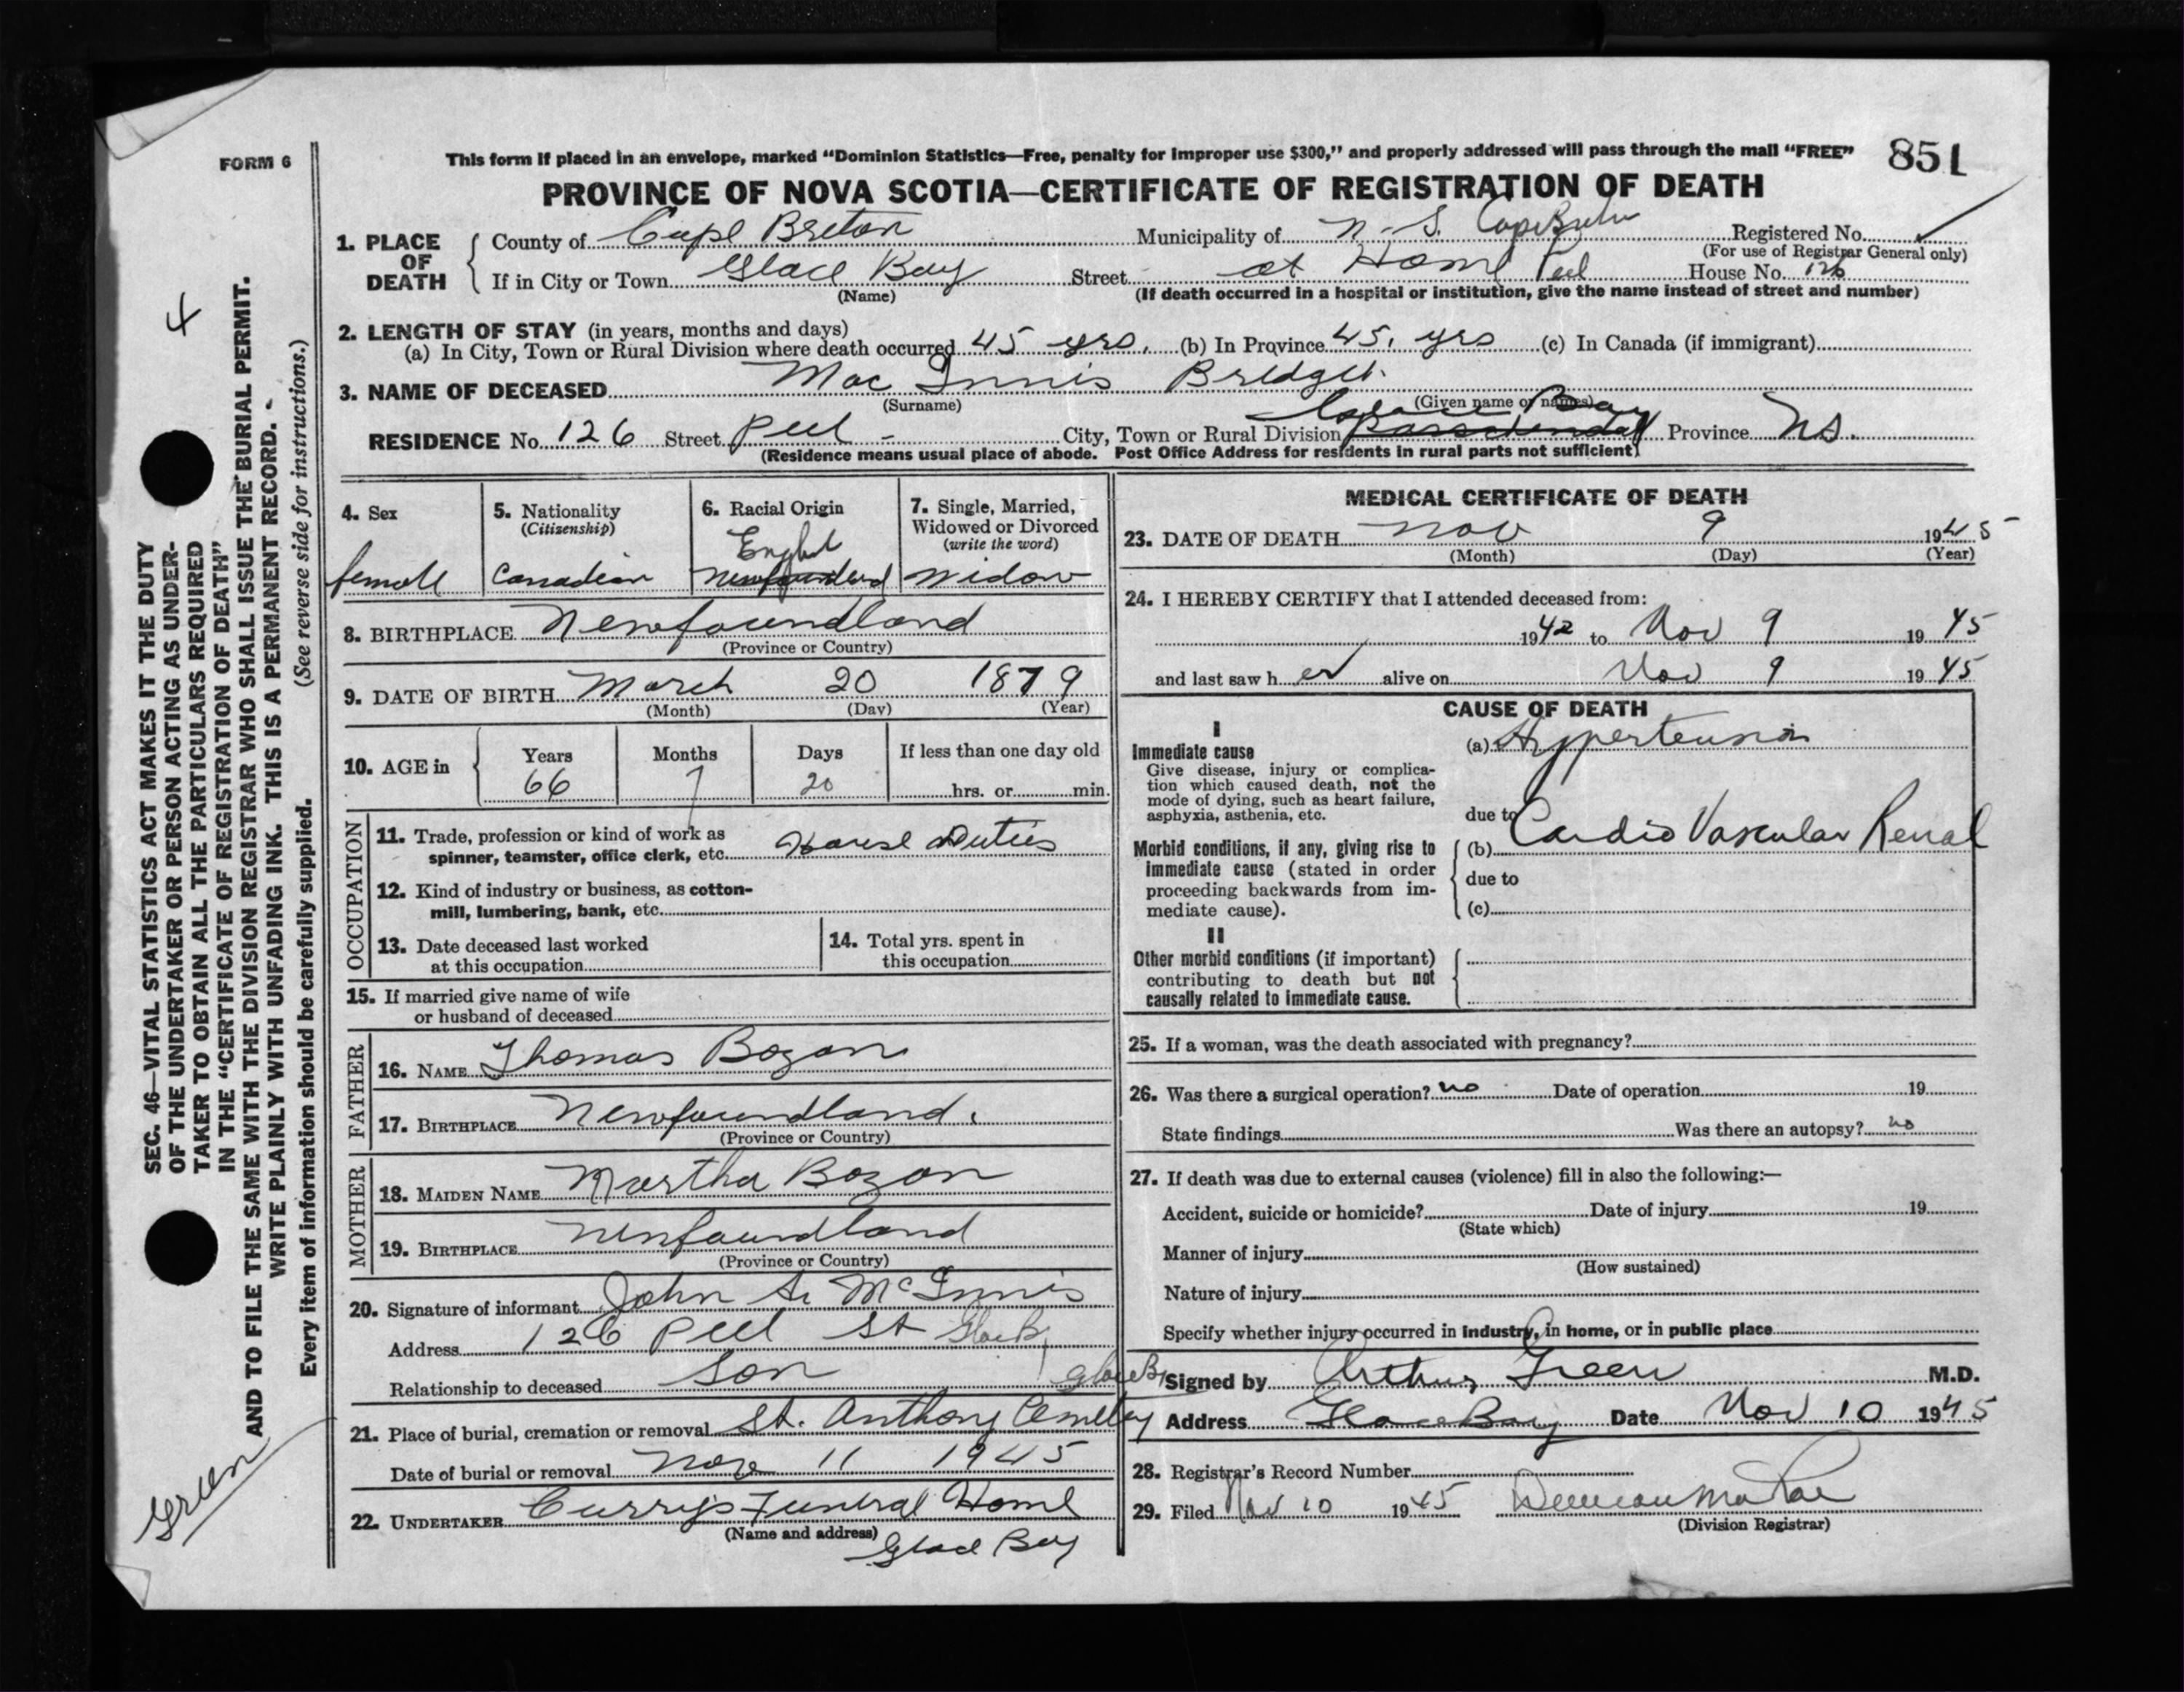 FORM 6
This form if placed in an envelope, marked "Dominion Statistics—Free, penalty for improper use $300," and properly addressed will pass through the mail "FREE"
851
PROVINCE OF NOVA SCOTIA—CERTIFICATE OF REGISTRATION OF DEATH
1. PLACE OF DEATH
County of Cape Breton Municipality of N.S. Cape Breton Registered No.
(For use of Registrar General only)
If in City or Town Glace Bay Street at Home Peel House No. 126
(Name) (If death occurred in a hospital or institution, give the name instead of street and number)
2. LENGTH OF STAY (in years, months and days)
(a) In City, Town or Rural Division where death occurred 45 yrs. (b) In Province 45. yrs (c) In Canada (if immigrant)
3. NAME OF DECEASED Mac Innis Bridget
(Surname) (Given name or names)
Glace Bay
RESIDENCE No. 126 Street Peel - City, Town or Rural Division Province NS.
(Residence means usual place of abode. Post Office Address for residents in rural parts not sufficient)
4. Sex
female
5. Nationality
(Citizenship)
Canadian
6. Racial Origin
English
Newfoundland
7. Single, Married,
Widowed or Divorced
(write the word)
Widow
8. BIRTHPLACE Newfoundland
(Province or Country)
9. DATE OF BIRTH March 20 1879
(Month) (Day) (Year)
10. AGE in
Years Months Days If less than one day old
66 7 20 hrs. or min.
OCCUPATION
11. Trade, profession or kind of work as
spinner, teamster, office clerk, etc. House Duties
12. Kind of industry or business, as cotton-
mill, lumbering, bank, etc.
13. Date deceased last worked
at this occupation
14. Total yrs. spent in
this occupation
15. If married give name of wife
or husband of deceased
FATHER
16. NAME Thomas Bozan
17. BIRTHPLACE Newfoundland.
(Province or Country)
MOTHER
18. MAIDEN NAME Martha Bozan
19. BIRTHPLACE Newfoundland
(Province or Country)
20. Signature of informant John A. McInnis
Address 126 Peel St Glace B,
Relationship to deceased Son
Glace B,
21. Place of burial, cremation or removal St. Anthony Cemetery
Date of burial or removal Nov 11 1945
22. UNDERTAKER Curry's Funeral Home
(Name and address)
Glace Bay
MEDICAL CERTIFICATE OF DEATH
23. DATE OF DEATH Nov 9 1945
(Month) (Day) (Year)
24. I HEREBY CERTIFY that I attended deceased from:
1942 to Nov 9 1945
and last saw her alive on Nov 9 1945
CAUSE OF DEATH
I
Immediate cause
Give disease, injury or complica-
tion which caused death, not the
mode of dying, such as heart failure,
asphyxia, asthenia, etc.
(a) Hypertension
due to
Morbid conditions, if any, giving rise to
immediate cause (stated in order
proceeding backwards from im-
mediate cause).
(b) Cardio Vascular Renal
due to
(c)
II
Other morbid conditions (if important)
contributing to death but not
causally related to immediate cause.
25. If a woman, was the death associated with pregnancy?
26. Was there a surgical operation? no Date of operation 19
State findings Was there an autopsy? no
27. If death was due to external causes (violence) fill in also the following:—
Accident, suicide or homicide? Date of injury 19
(State which)
Manner of injury
(How sustained)
Nature of injury
Specify whether injury occurred in industry, in home, or in public place
Signed by Arthur Green M.D.
Address Glace Bay Date Nov 10 1945
28. Registrar's Record Number
29. Filed Nov 10 1945 Duncan MacRae
(Division Registrar)
4
SEC. 46—VITAL STATISTICS ACT MAKES IT THE DUTY
OF THE UNDERTAKER OR PERSON ACTING AS UNDER-
TAKER TO OBTAIN ALL THE PARTICULARS REQUIRED
IN THE "CERTIFICATE OF REGISTRATION OF DEATH"
AND TO FILE THE SAME WITH THE DIVISION REGISTRAR WHO SHALL ISSUE THE BURIAL PERMIT.
WRITE PLAINLY WITH UNFADING INK. THIS IS A PERMANENT RECORD.
Every item of information should be carefully supplied. (See reverse side for instructions.)
Green